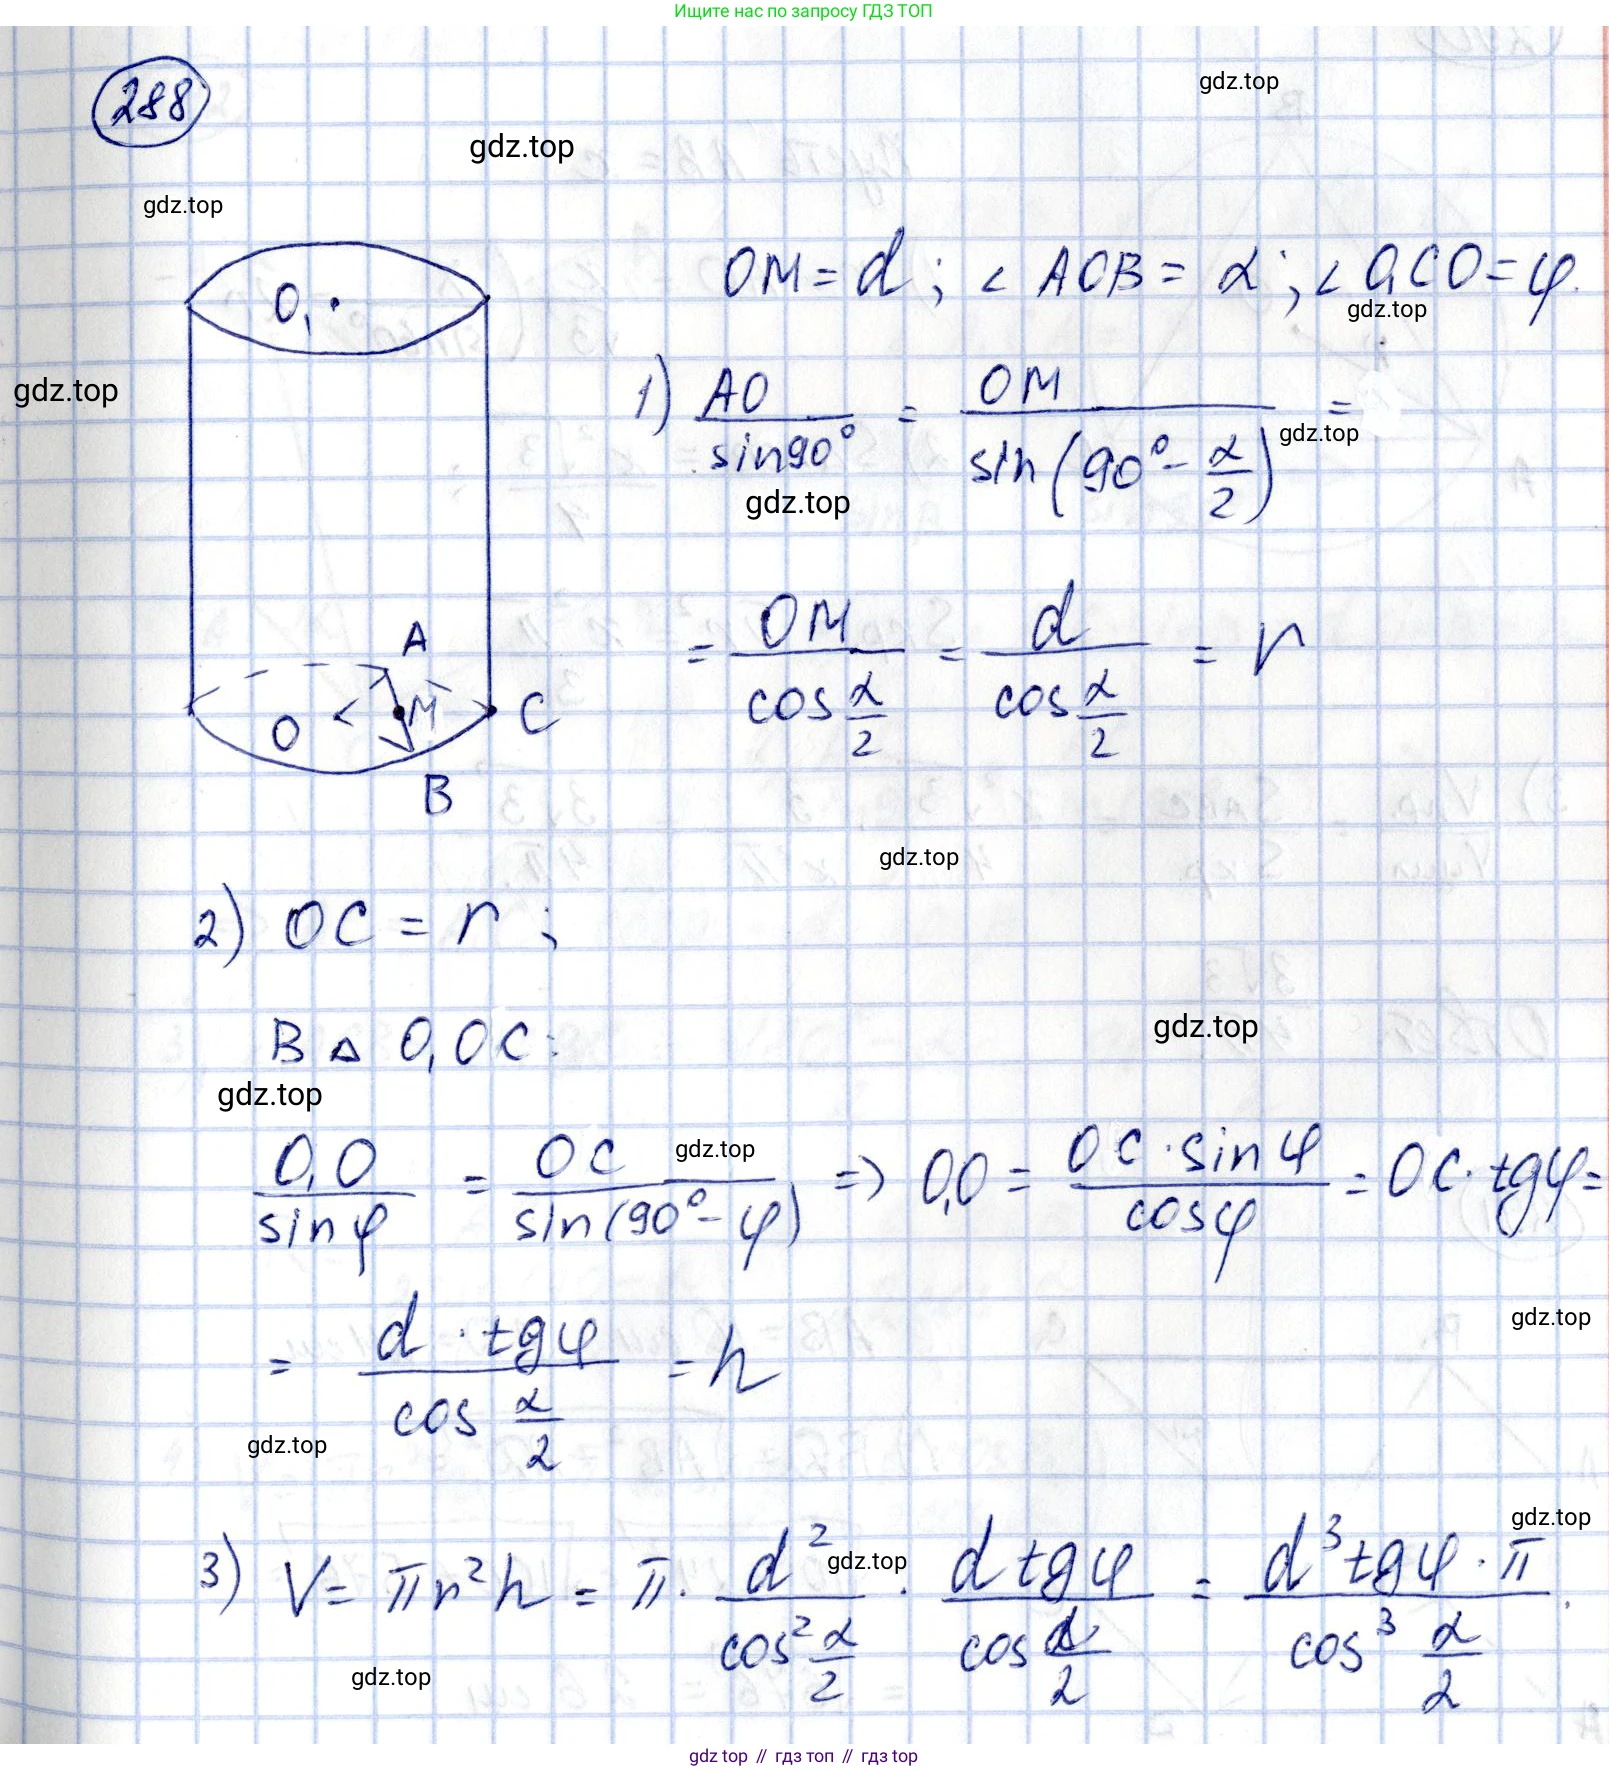 Ищите нас по запросу ГДЗ ТОП
288
gdz.top
gdz.top
gdz.top
O₁
OM = d; ∠AOB = α; ∠O₁CO = φ.
gdz.top
gdz.top
1) AO/sin90° = OM/sin(90° - α/2) =
gdz.top
gdz.top
= OM/cos α/2 = d/cos α/2 = r
A
M
C
O
B
gdz.top
2) OC = r;
В △ O₁OC:
gdz.top
gdz.top
gdz.top
O₁O/sin φ = OC/sin(90° - φ) => O₁O = OC · sin φ/cos φ = OC · tg φ =
gdz.top
= d · tg φ/cos α/2 = h
gdz.top
gdz.top
3) V = πr²h = π · d²/cos² α/2 · d tg φ/cos α/2 = d³ tg φ · π/cos³ α/2.
gdz.top
gdz.top
gdz top // гдз топ // gdz top